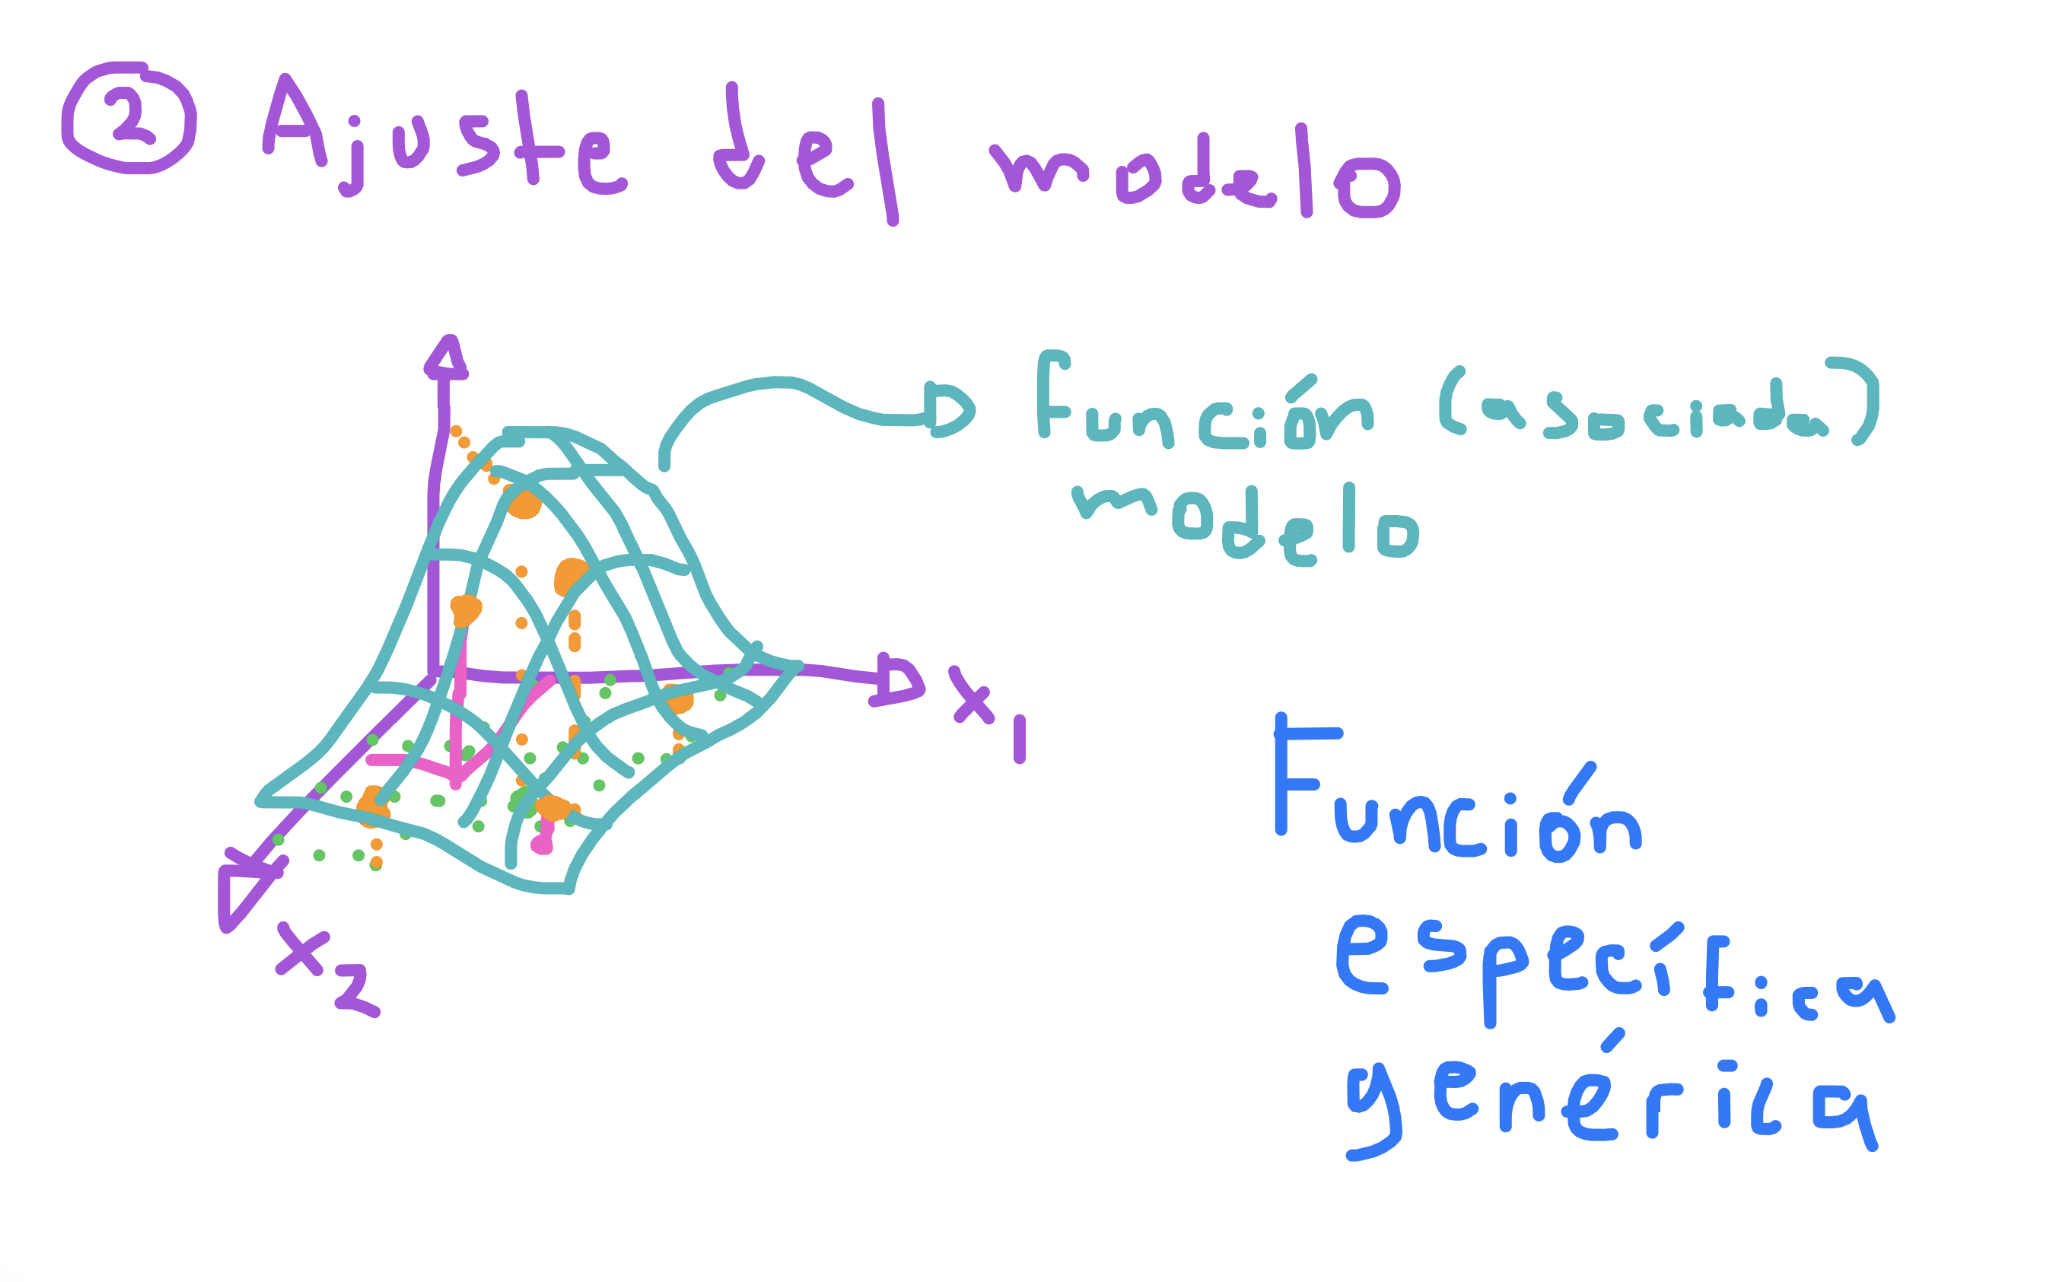 2 Ajuste del modelo
Función (asociada)
modelo
x1
x2
Función
específica
genérica